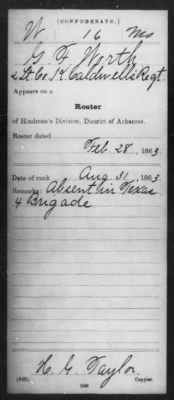 (CONFEDERATE.)
W. 16 Mo
G. F. Worth
2 Lt. Co. K Caldwell's Regt.
Appears on a
Roster
of Hindman's Division, District of Arkansas.
Roster dated
Feb. 28, 1863.
Date of rank Aug 31, 1863.
Remarks: Absent in Texas
4 Brigade
H. G. Taylor
Copyist.